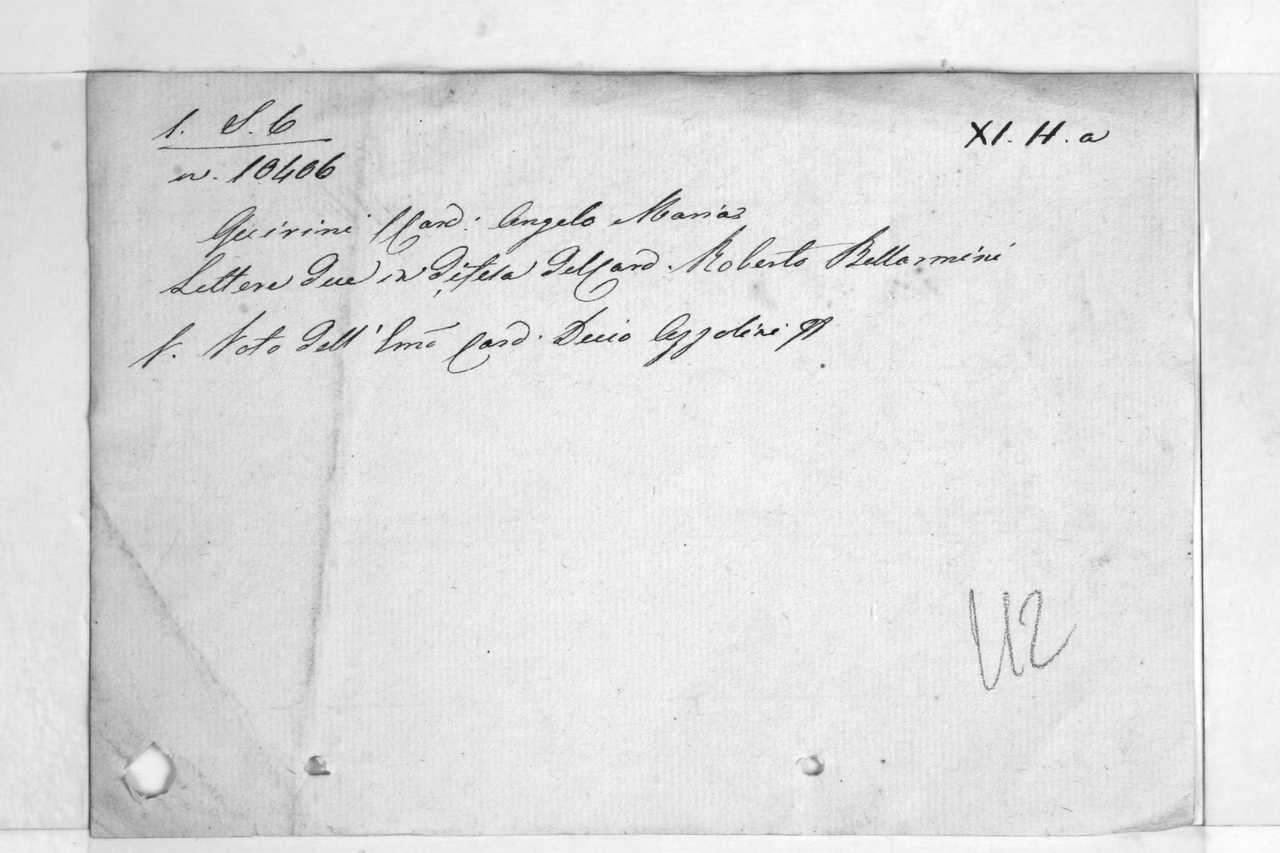 1. S. 6
XI. H. a
n. 10406
Quirini Card: Angelo Maria
Lettere due in difesa del Card. Roberto Bellarmini
V. Voto dell' Emo Card. Decio Azzolini